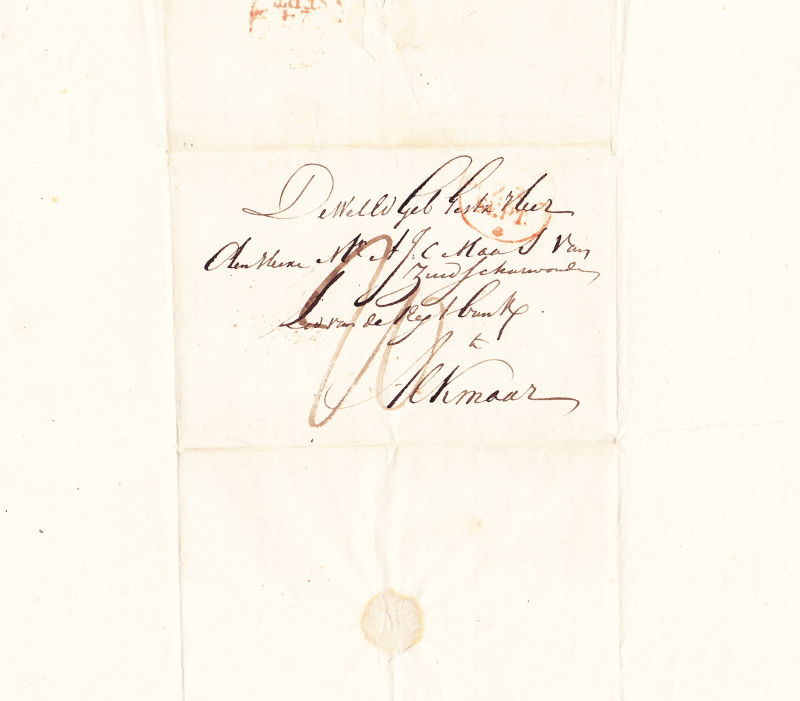 De Well Geb Gestr Heer
den Heere Mr A J C Maas Van
Zuidscharwoude
van de Regtbank
te
Alkmaar